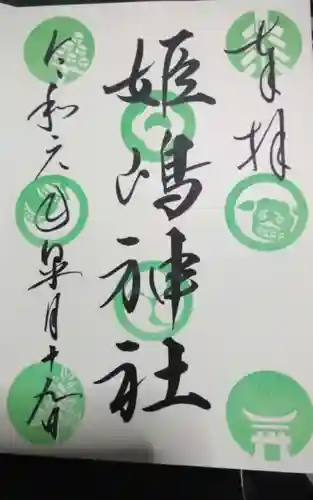 奉拝
姫嶋神社
令和六年皐月十九日